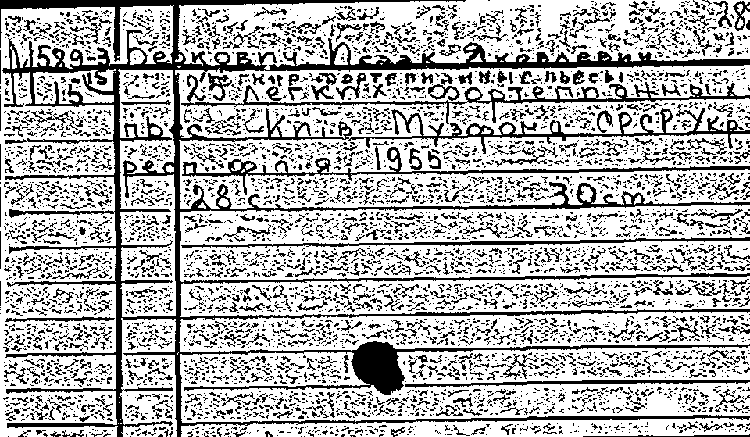 28
М589-3 Беркович Исаак Яковлевич
15 легкие фортепианные пьесы
1115 25 легких фортепианных
пьес Київ Музфонд СРСР Укр.
респ. філія, 1955.
28 с. 30 cm